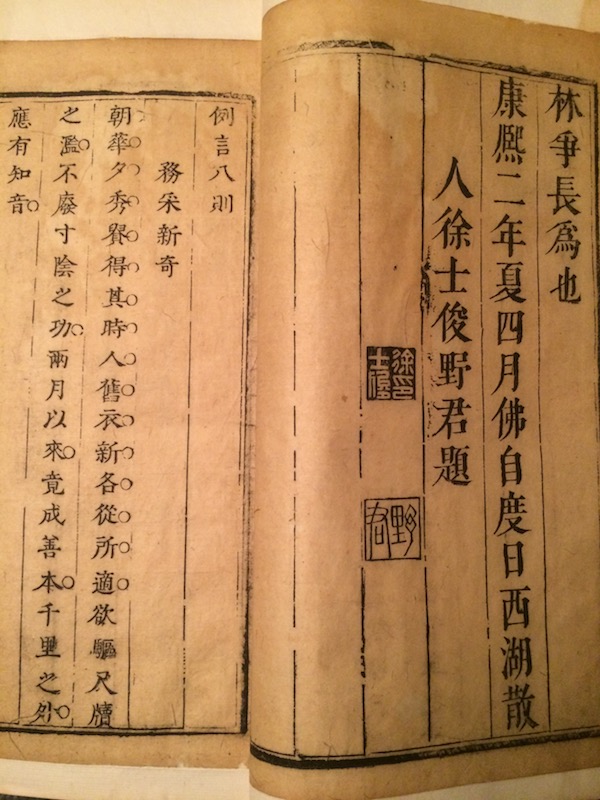 林爭長爲也
康熈二年夏四月佛自度日西湖散
人徐士俊野君題
徐印
士俊
野君
例言八則
務采新奇
朝華夕秀貴得其時人舊衣新各從所適欲驅尺牘
之濫不廢寸陰之功兩月以來竟成善本千里之外
應有知音